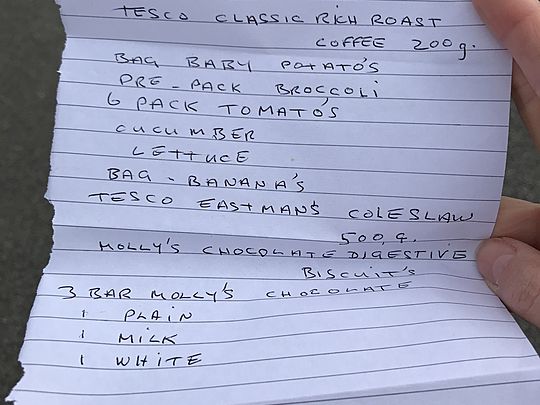 TESCO CLASSIC RICH ROAST
COFFEE 200g.
BAG BABY POTATO'S
PRE-PACK BROCCOLI
6 PACK TOMATO'S
CUCUMBER
LETTUCE
BAG - BANANA'S
TESCO EASTMANS COLESLAW
500,G.
MOLLY'S CHOCOLATE DIGESTIVE
BISCUIT'S
3 BAR MOLLY'S CHOCOLATE
1 PLAIN
1 MILK
1 WHITE